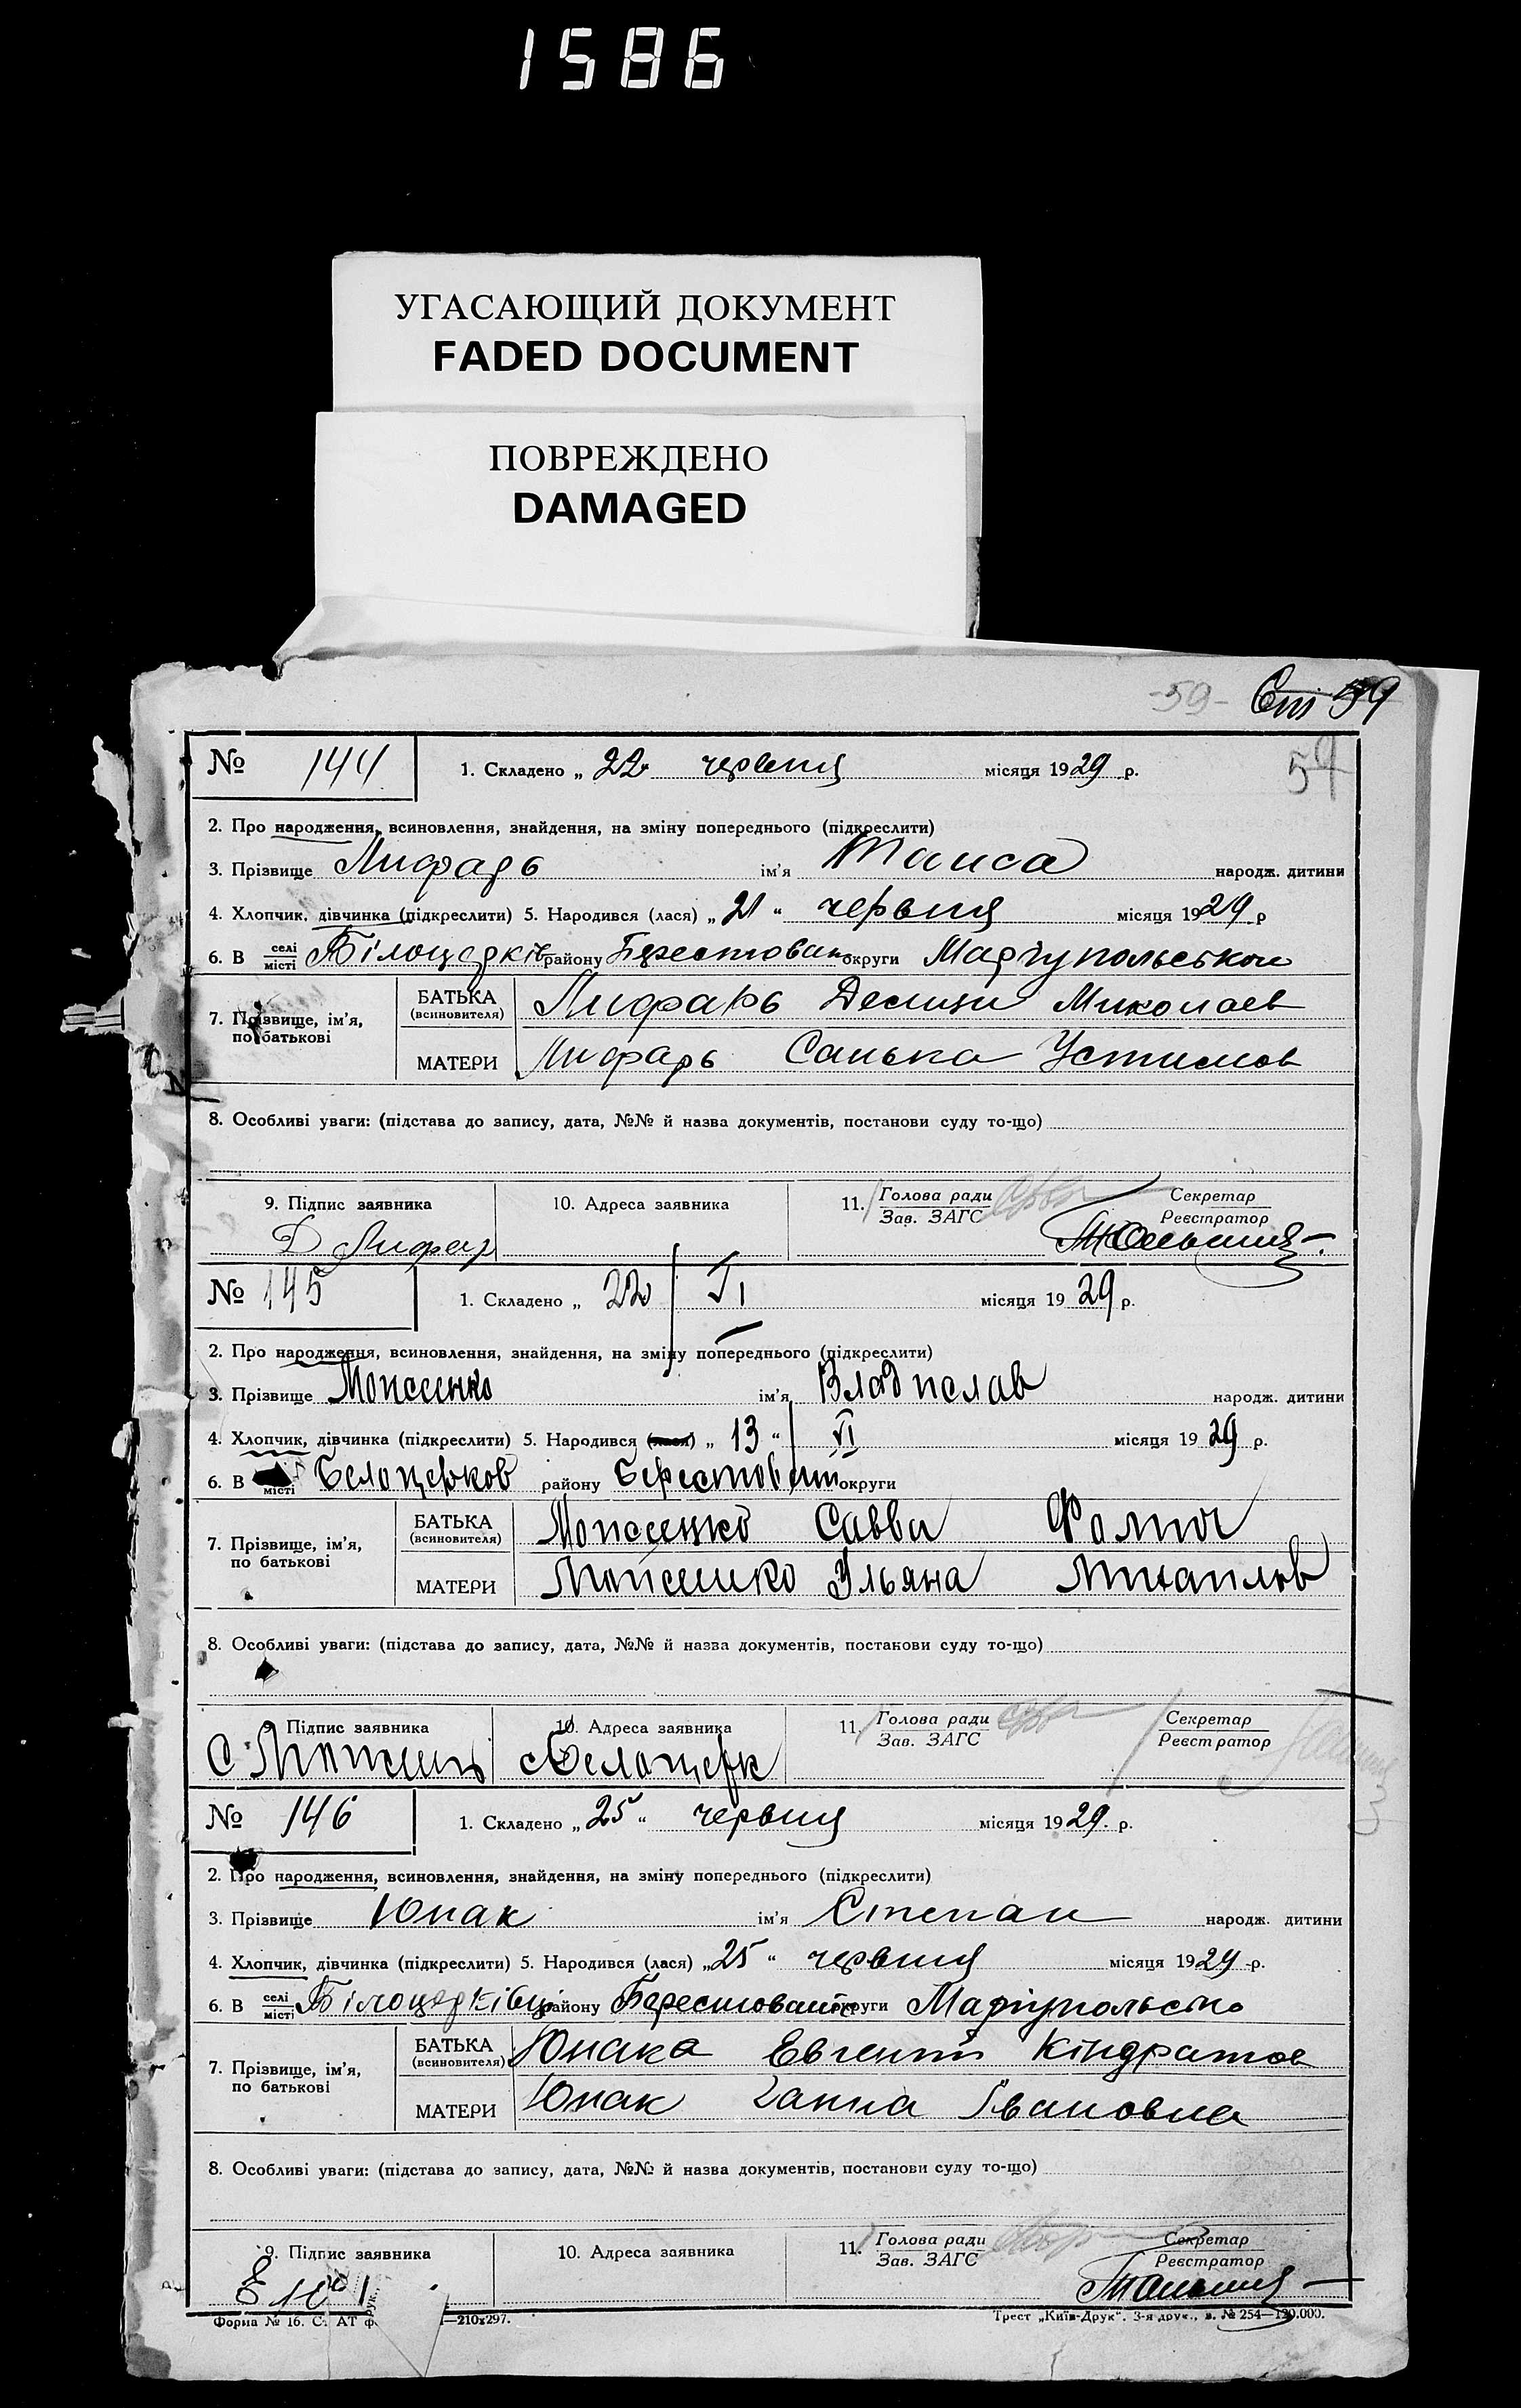 1586
УГАСАЮЩИЙ ДОКУМЕНТ
FADED DOCUMENT
ПОВРЕЖДЕНО
DAMAGED
-59- 59
59
№ 144 1. Складено „ 22 червня місяця 1929 р.
2. Про народження, всиновлення, знайдення, на зміну попереднього (підкреслити)
3. Прізвище Лифарь ім'я Таиса народж. дитини
4. Хлопчик, дівчинка (підкреслити) 5. Народився (лася) „ 21 “ червня місяця 1929 р
6. В селі місті Білоцерків району Берестован округи Маріупольськой
7. Прізвище, ім'я, по батькові
БАТЬКА (всиновителя) Лифарь Миколаев
МАТЕРИ Лифарь Санька Устимов
8. Особливі уваги: (підстава до запису, дата, №№ й назва документів, постанови суду то-що)
9. Підпис заявника 10. Адреса заявника 11. Голова ради Зав. ЗАГС Секретар Реєстратор
Д Лифар
№ 145 1. Складено „ 22 / VI місяця 1929 р.
2. Про народження, всиновлення, знайдення, на зміну попереднього (підкреслити)
3. Прізвище Моисеенко ім'я Владислав народж. дитини
4. Хлопчик, дівчинка (підкреслити) 5. Народився (лася) „ 13 “ / VI місяця 1929 р.
6. В місті Белоцерков району Берестован округи
7. Прізвище, ім'я, по батькові
БАТЬКА (всиновителя) Моисеенко Савва Фомич
МАТЕРИ Моисеенко Ульяна Михайлов
8. Особливі уваги: (підстава до запису, дата, №№ й назва документів, постанови суду то-що)
9. Підпис заявника 10. Адреса заявника 11. Голова ради Зав. ЗАГС Секретар Реєстратор
С Белоцерк
№ 146 1. Складено „ 25 “ червня місяця 1929. р.
2. Про народження, всиновлення, знайдення, на зміну попереднього (підкреслити)
3. Прізвище Юнак ім'я Степан народж. дитини
4. Хлопчик, дівчинка (підкреслити) 5. Народився (лася) „ 25 “ червня місяця 1929 р.
6. В селі місті Білоцерківці району Берестованс округи Маріупольсько
7. Прізвище, ім'я, по батькові
БАТЬКА (всиновителя) Юнака Евгений Кіндратов
МАТЕРИ Юнак Ганна Івановна
8. Особливі уваги: (підстава до запису, дата, №№ й назва документів, постанови суду то-що)
9. Підпис заявника 10. Адреса заявника 11. Голова ради Зав. ЗАГС Секретар Реєстратор
Форма № 16. С. АТ ф. —210x297. Трест „Київ-Друк“. 3-я друк., з. № 254—120.000.